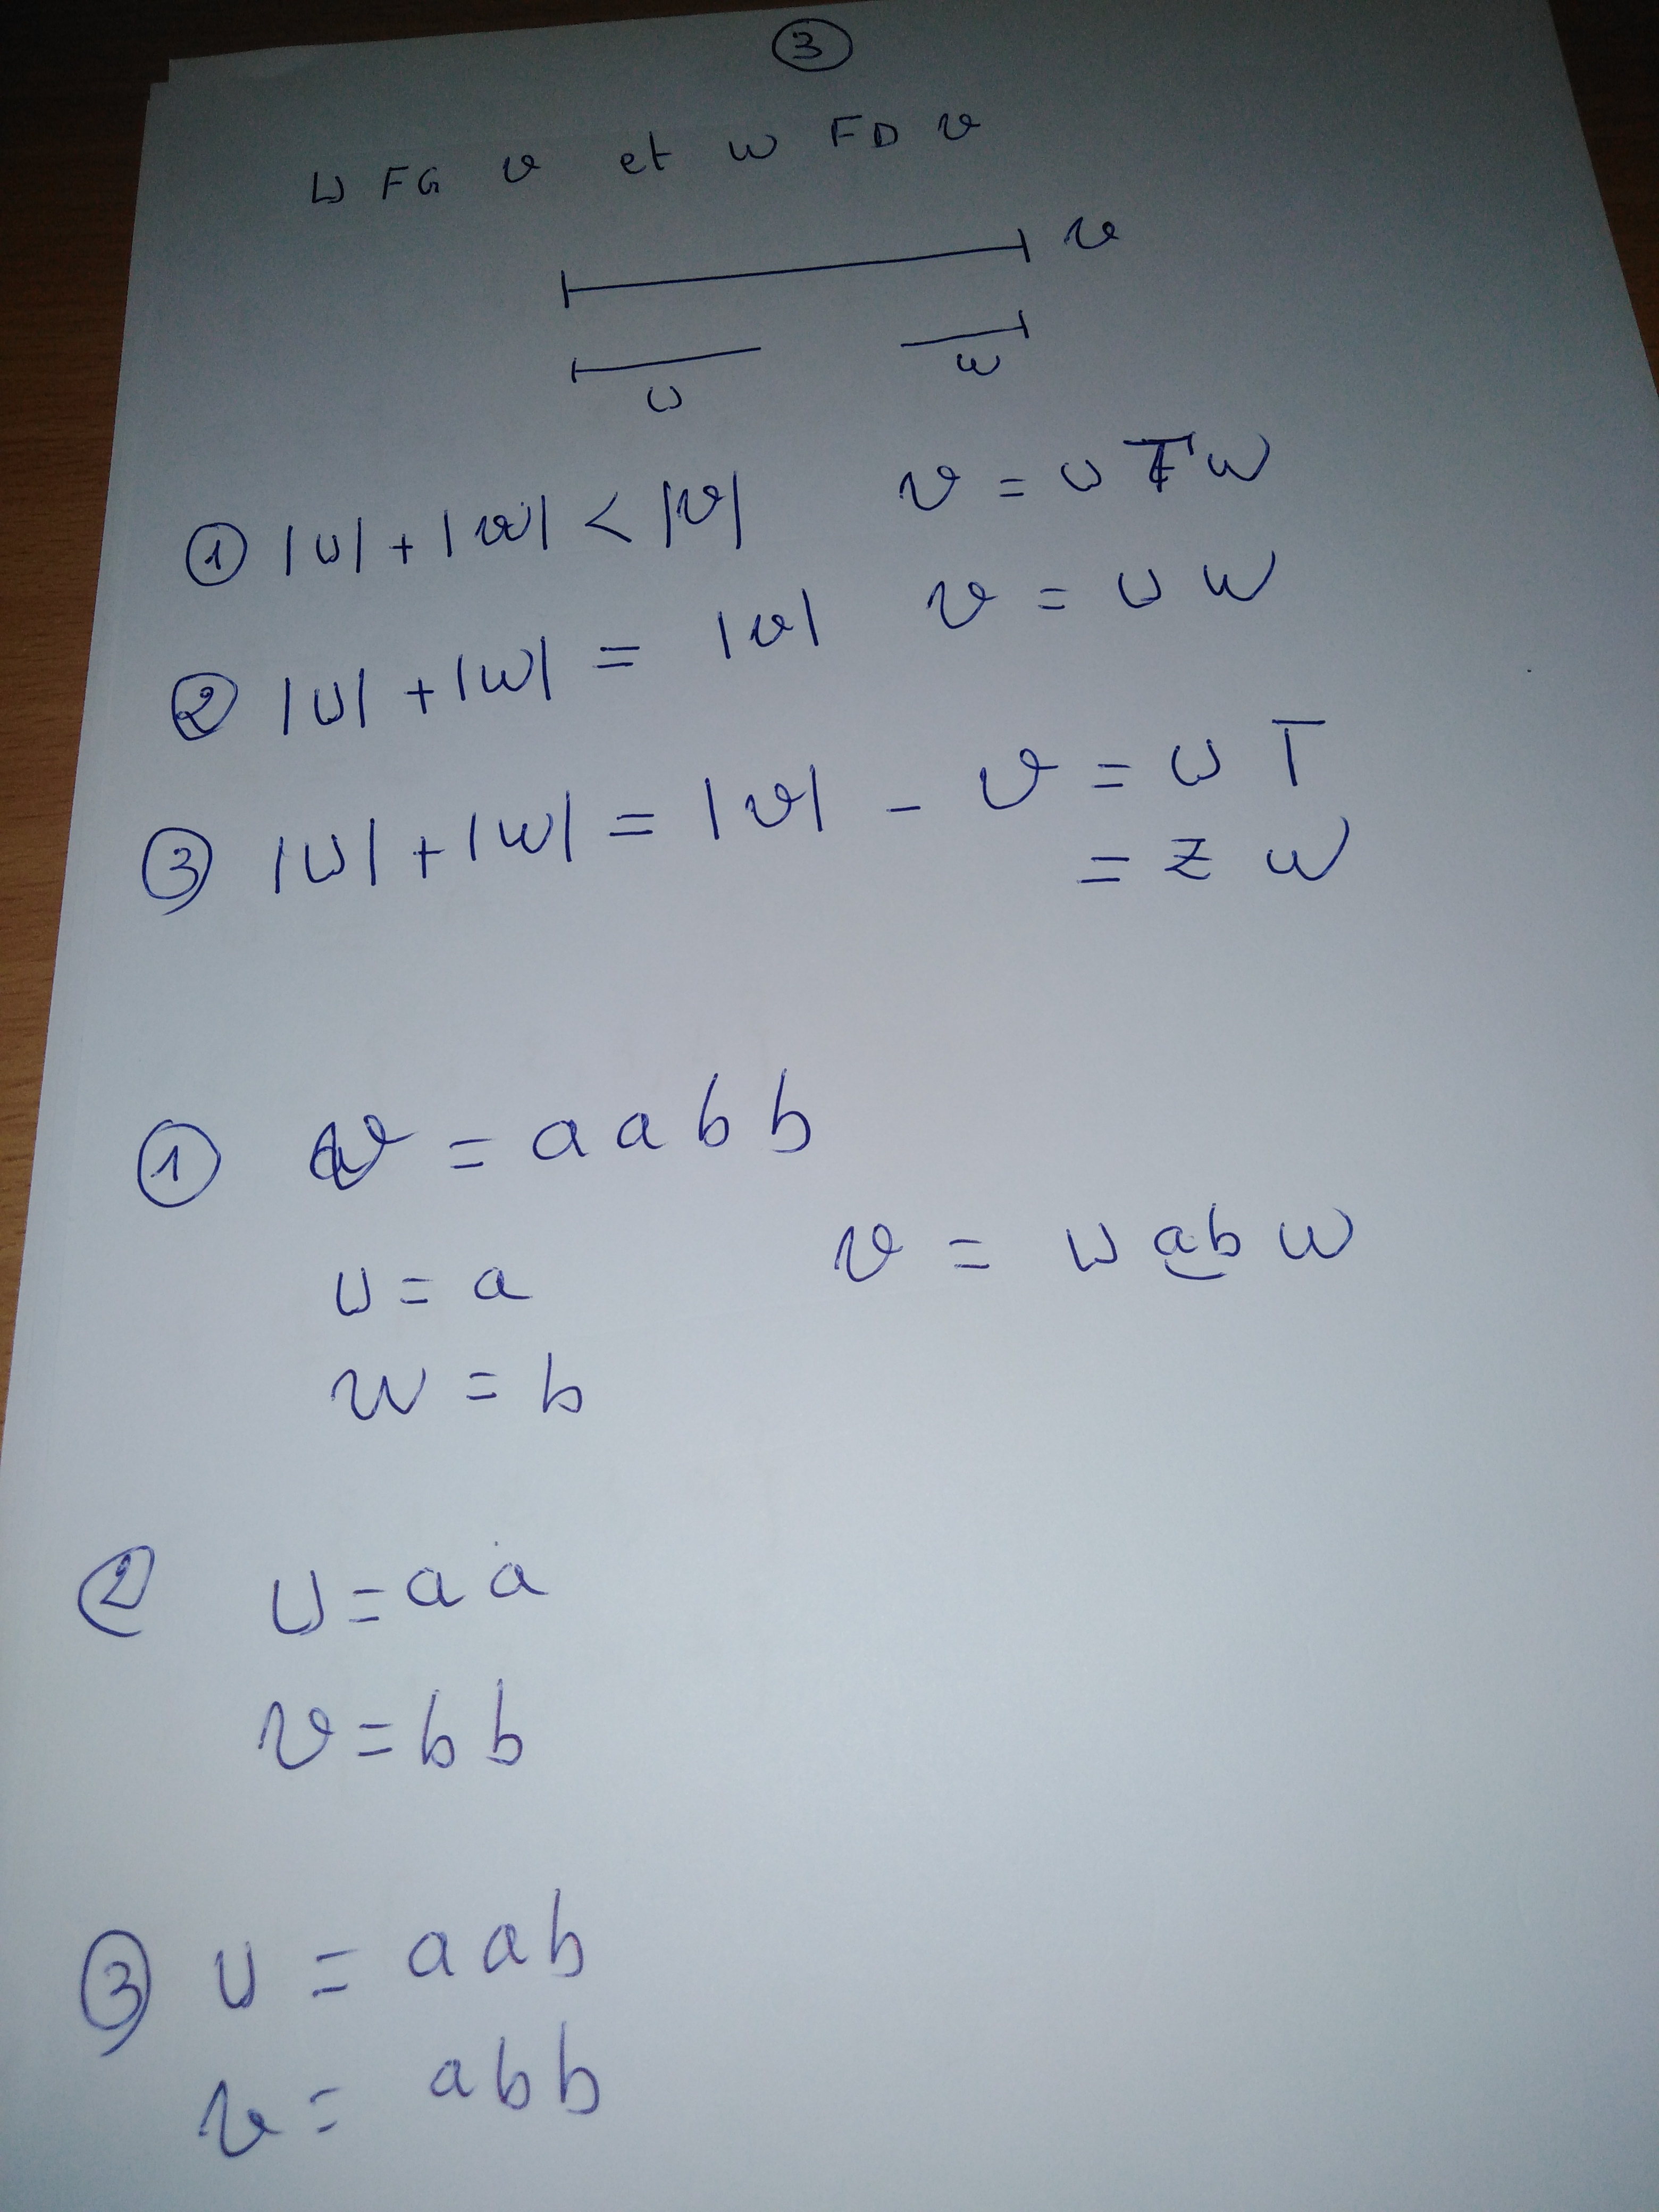 3
u FG v et w FD v
v
u w
① |u| + |w| < |v| v = u T w
② |u| + |w| = |v| v = u w
③ |u| + |w| = |v| - v = u T
= z w
① v = a a b b
u = a v = u ab w
w = b
② u = a a
v = b b
③ u = a a b
v = a b b